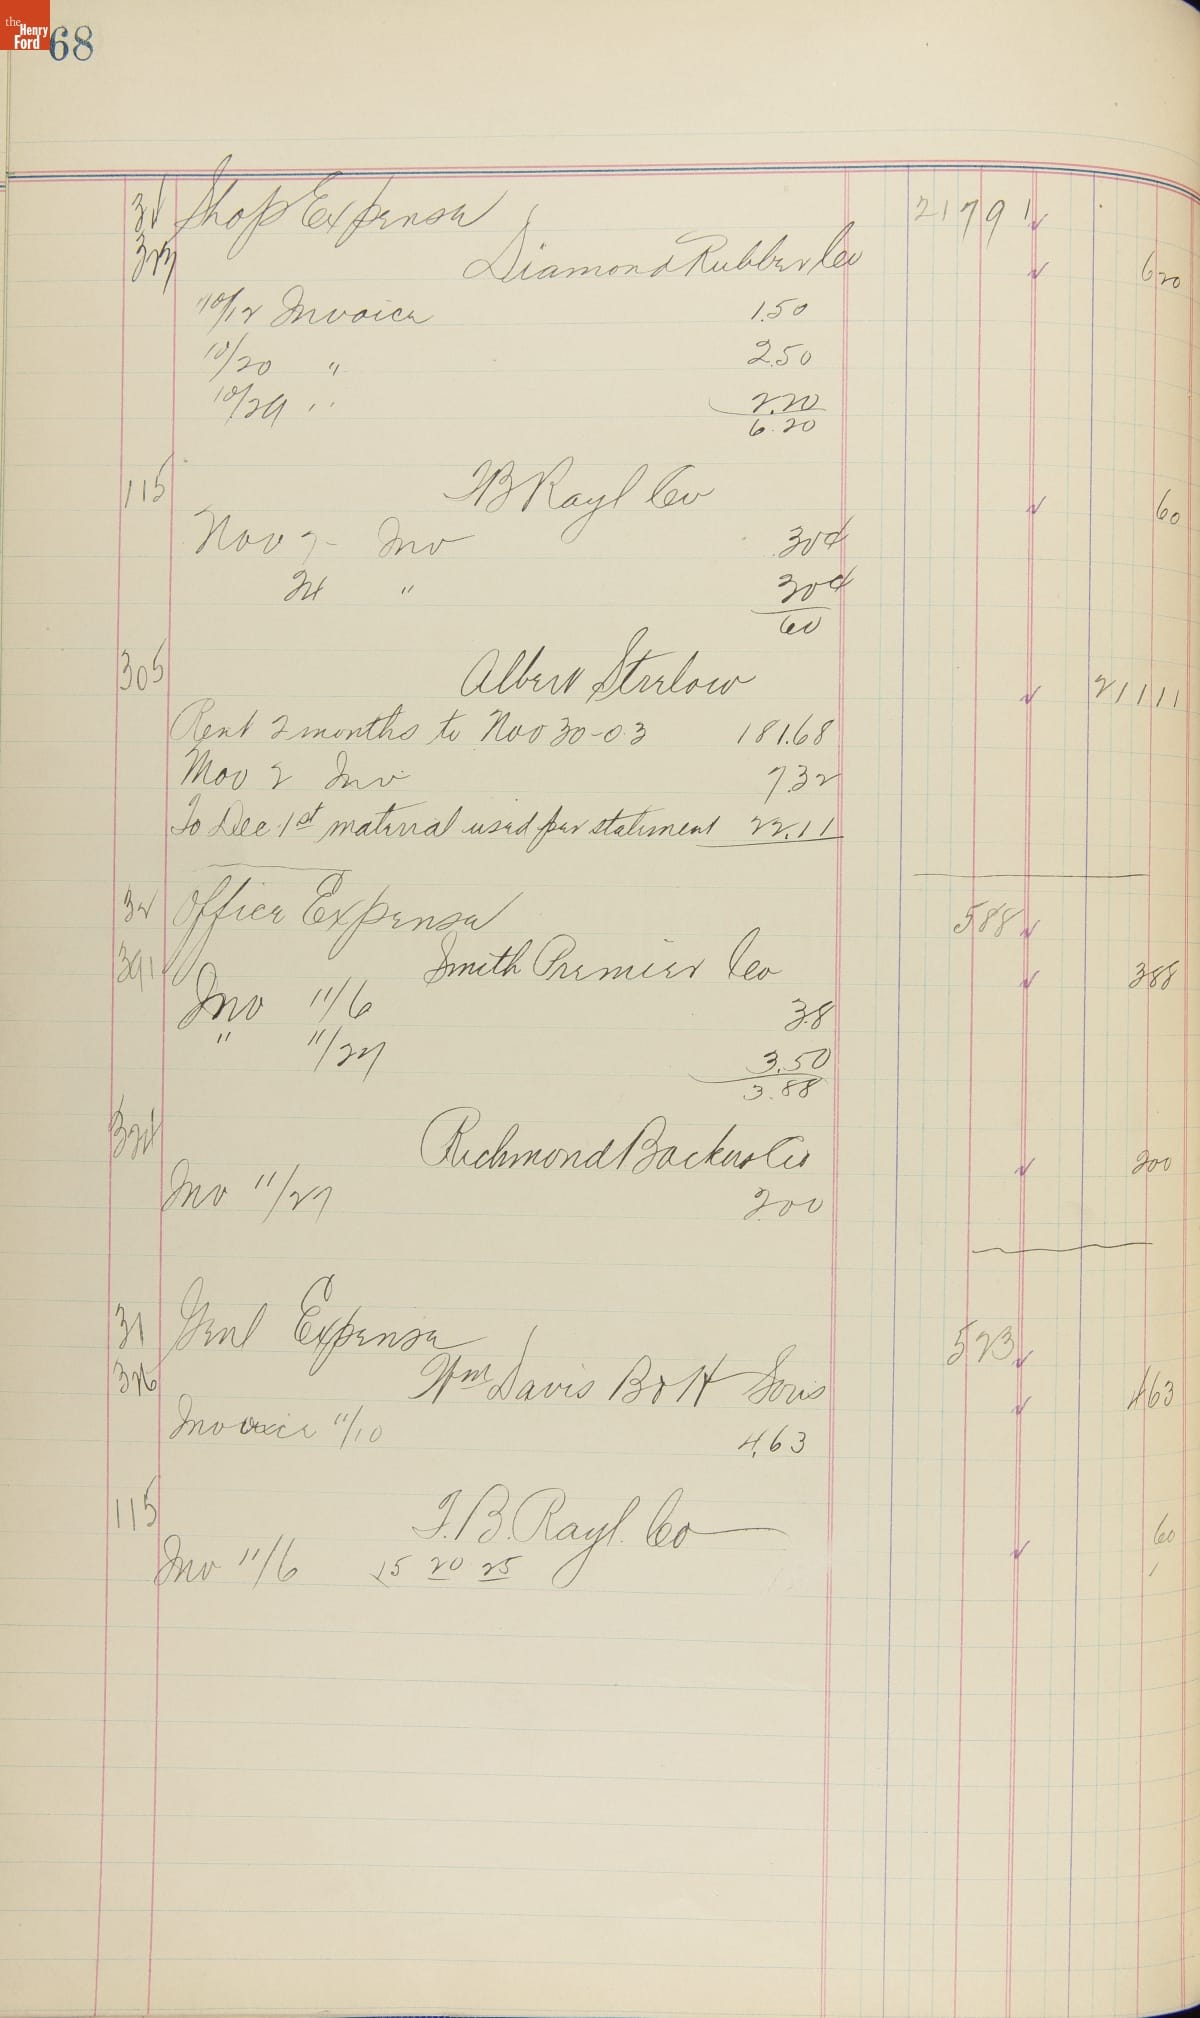 the Henry Ford
68
31 Shop Expense 217 91
327 Diamond Rubber Co 6 20
10/12 Invoice 1.50
10/20 " 2.50
10/29 " 2.20
6.20
115 T B Rayl Co 60
Nov 7 Inv 30¢
24 " 30¢
60
305 Albert Strelow 211 11
Rent 2 months to Nov 30-03 181.68
Nov 2 Inv 7.32
To Dec 1st material used per statement 22.11
32 Office Expense 5 88
391 Smith Premier Co 3 88
Inv 11/6 38
" 11/27 3.50
3.88
321 Richmond Backus Co 2 00
Inv 11/27 2.00
31 Genl Expense 5 23
326 Wm Davis B & H Sons 4 63
Invoice 11/10 4.63
115 T. B. Rayl. Co 60
Inv 11/6 15 20 25